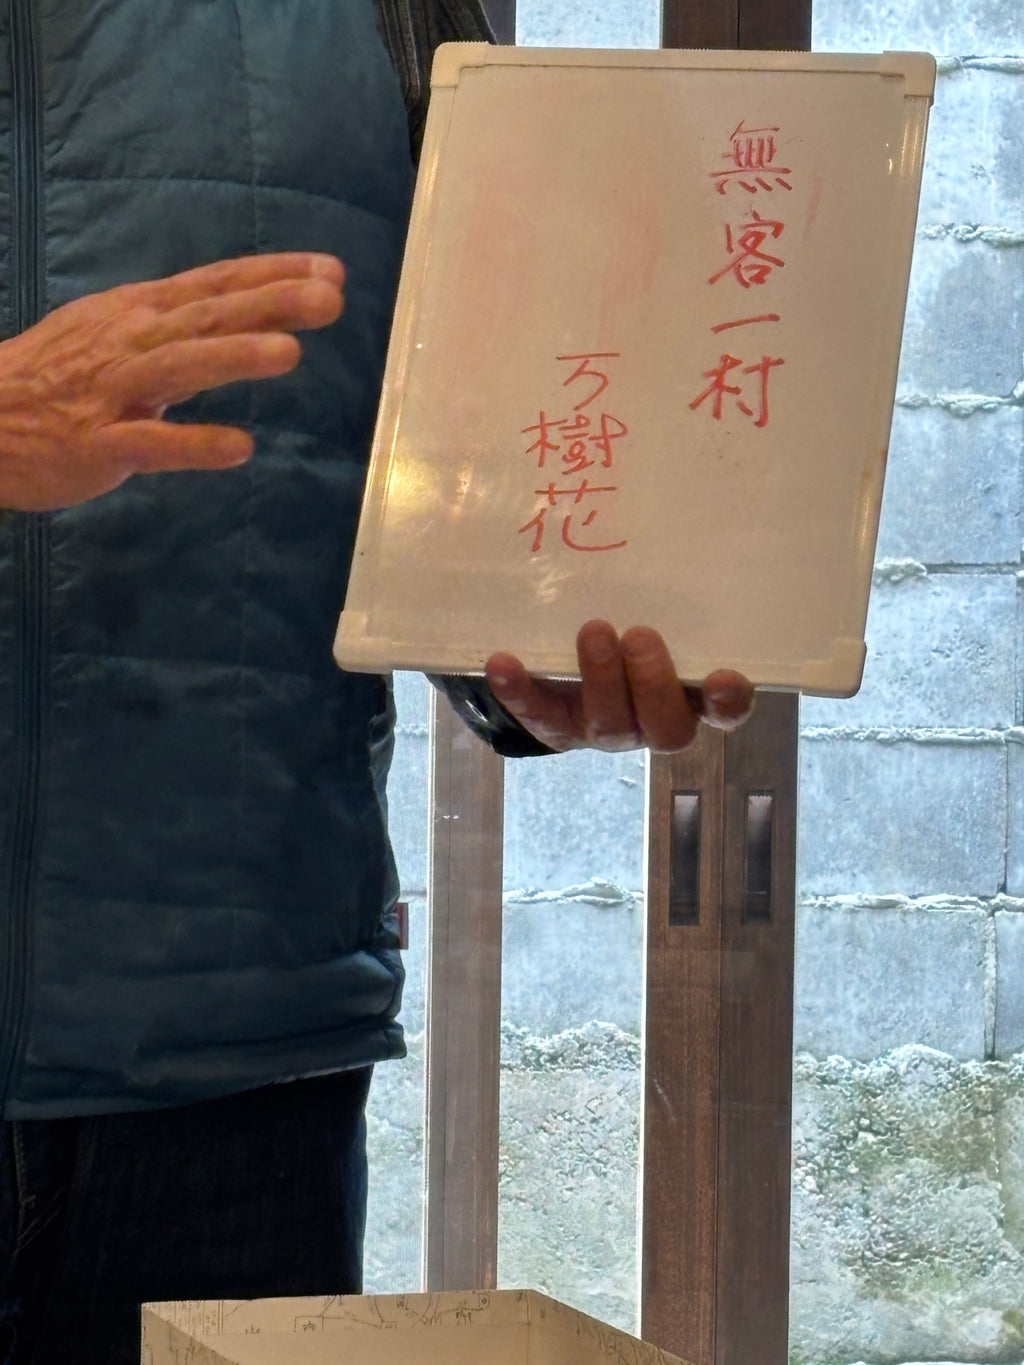 無客一村
万樹花